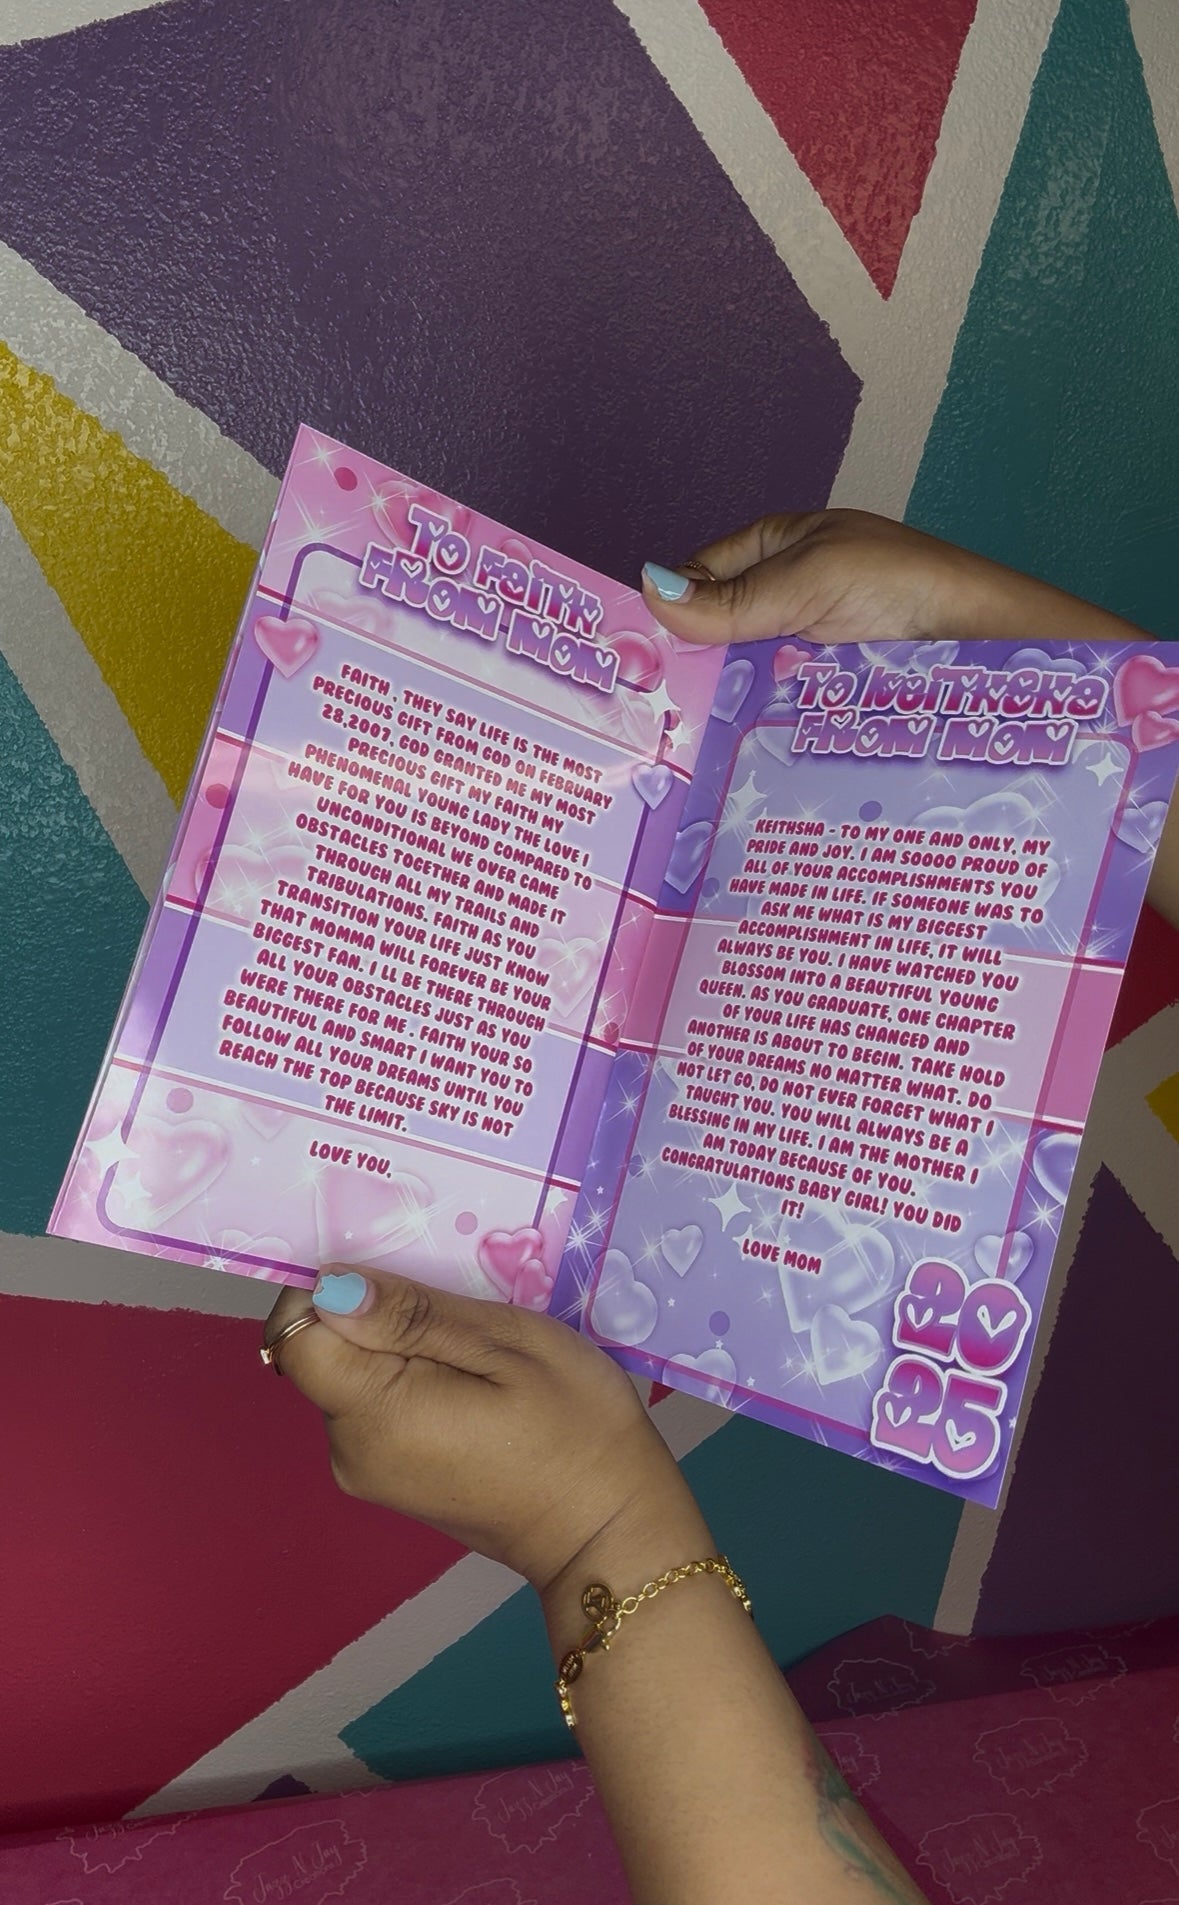 TO FAITH
FROM MOM
FAITH , THEY SAY LIFE IS THE MOST
PRECIOUS GIFT FROM GOD ON FEBRUARY
28,2007, GOD GRANTED ME MY MOST
PRECIOUS GIFT MY FAITH MY
PHENOMENAL YOUNG LADY THE LOVE I
HAVE FOR YOU IS BEYOND COMPARED TO
UNCONDITIONAL WE OVER CAME
OBSTACLES TOGETHER AND MADE IT
THROUGH ALL MY TRAILS AND
TRIBULATIONS. FAITH AS YOU
TRANSITION YOUR LIFE JUST KNOW
THAT MOMMA WILL FOREVER BE YOUR
BIGGEST FAN. I LL BE THERE THROUGH
ALL YOUR OBSTACLES JUST AS YOU
WERE THERE FOR ME . FAITH YOUR SO
BEAUTIFUL AND SMART I WANT YOU TO
FOLLOW ALL YOUR DREAMS UNTIL YOU
REACH THE TOP BECAUSE SKY IS NOT
THE LIMIT.
LOVE YOU,
TO KEITHSHA
FROM MOM
KEITHSHA - TO MY ONE AND ONLY, MY
PRIDE AND JOY. I AM SOOOO PROUD OF
ALL OF YOUR ACCOMPLISHMENTS YOU
HAVE MADE IN LIFE. IF SOMEONE WAS TO
ASK ME WHAT IS MY BIGGEST
ACCOMPLISHMENT IN LIFE, IT WILL
ALWAYS BE YOU. I HAVE WATCHED YOU
BLOSSOM INTO A BEAUTIFUL YOUNG
QUEEN. AS YOU GRADUATE, ONE CHAPTER
OF YOUR LIFE HAS CHANGED AND
ANOTHER IS ABOUT TO BEGIN. TAKE HOLD
OF YOUR DREAMS NO MATTER WHAT. DO
NOT LET GO, DO NOT EVER FORGET WHAT I
TAUGHT YOU. YOU WILL ALWAYS BE A
BLESSING IN MY LIFE. I AM THE MOTHER I
AM TODAY BECAUSE OF YOU.
CONGRATULATIONS BABY GIRL! YOU DID
IT!
LOVE MOM
20
25
Jazz N Jay
Jazz N Jay
Jazz N Jay
Jazz N Jay